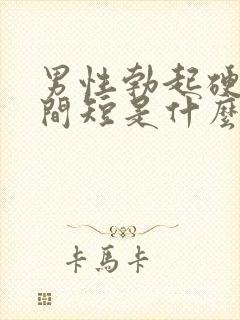 男性勃起硬
間短是什麼
卡馬卡